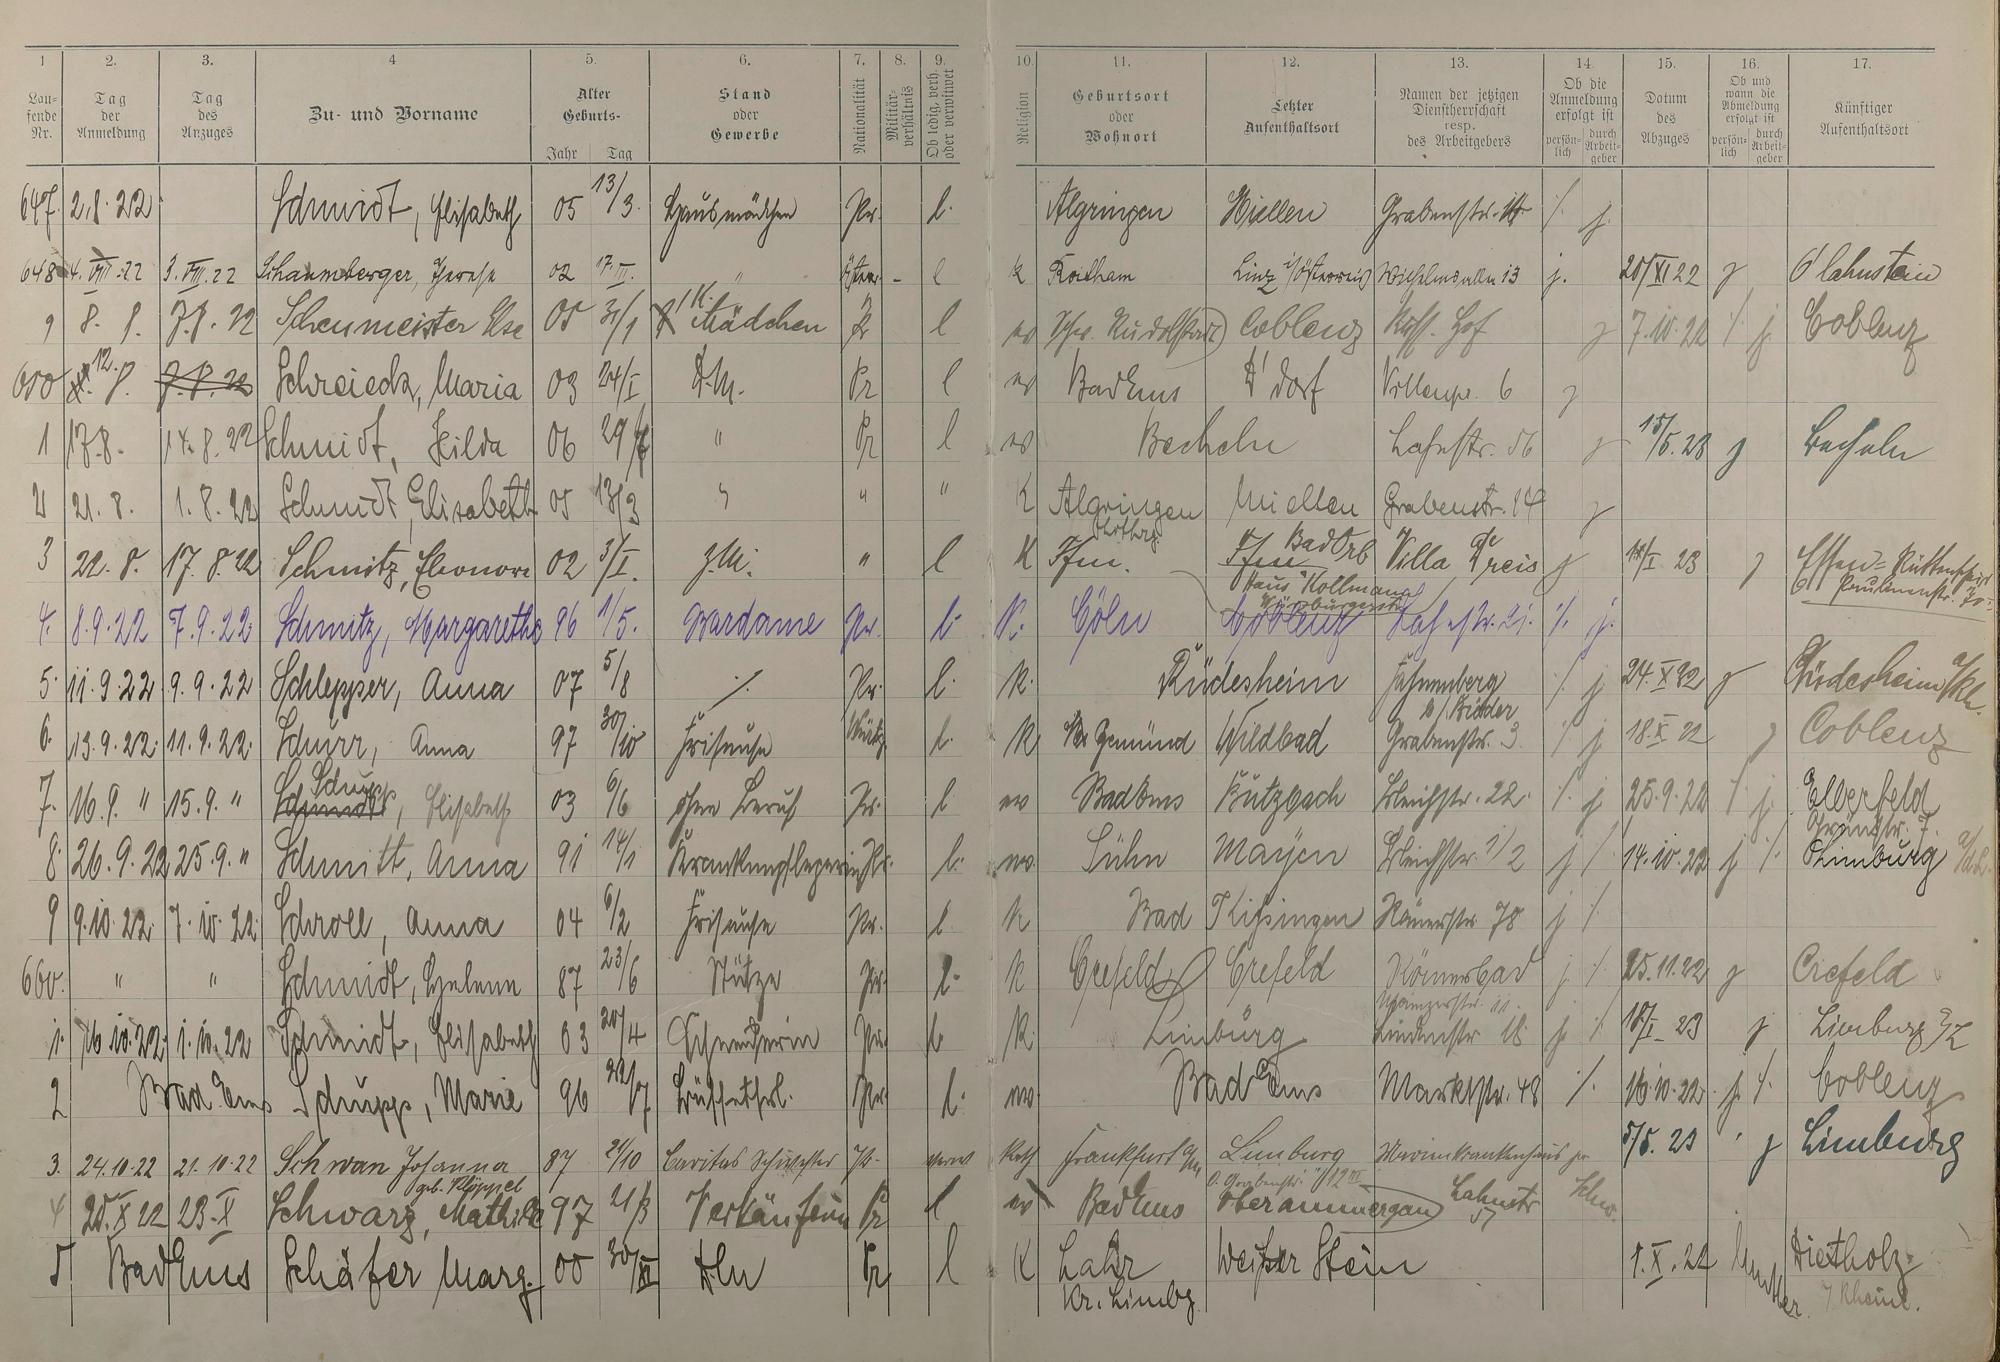 1 2. 3. 4 5. 6. 7. 8. 9. 10. 11. 12. 13. 14 15. 16. 17.
Laufende Nr. Tag der Anmeldung Tag des Anzuges Zu- und Vorname Alter Geburts- Jahr Tag Stand oder Gewerbe Nationalität Militärverhältnis Ob ledig, verh. oder verwitwet Religion Geburtsort oder Wohnort Letzter Aufenthaltsort Namen der jetzigen Dienstherrschaft resp. des Arbeitgebers Ob die Anmeldung erfolgt ist persönlich durch Arbeitgeber Datum des Abzuges Ob und wann die Abmeldung erfolgt ist persönlich durch Arbeitgeber Künftiger Aufenthaltsort
647. 2.8.22 Schmidt, Elisabeth 05 13/3. Hausmädchen Pr. l. Algringen Miellen Grabenstr. 14 /. j.
648 4. VIII. 22 3. VIII. 22 Schaumberger, Therese 02 17. III. " Österr. - l k Roitham Linz i/Österreich Wilhelmsallee 13 j. 20/XI 22 j O'lahnstein
9 8. 8. 7.8. 22 Scheumeister Else 05 31/1 Mädchen Pr l ev Rudolstadt Coblenz Hof j 7.10.22 /. j. Coblenz
650 12. 8. 7.8.22 Schreieck, Maria 03 24/I D.M. Pr l ev Bad Ems D'dorf Villenpr. 6 j
1 17.8. 14.8.22 Schmidt, Hilda 06 29/ " Pr l ev Becheln Lahnstr. 56 j 15/5.23 j Becheln
2 21. 8. 1. 8. 22 Schmidt, Elisabeth 05 13/3 " " " K Algringen Miellen Grabenstr. 14 j
3 22. 8. 17. 8. 22 Schmitz, Eleonore 02 3/I. Z.M. " l K Ffm. Ffm Bad Orb Villa Treis j /I 23 j Essen-Rüttenscheid
Haus Kollmann
Würzburgerstr.
4. 8.9.22 7.9.22 Schmitz, Margarethe 96 1/5. Bardame Pr. l. K. Cöln Coblenz Lahnstr. 21. /. j.
5. 11.9.22 9.9.22 Schlepper, Anna 07 5/8 /. Pr. l. K. Rüdesheim Fahnenberg /. j 24. X 22 j Rüdesheim a/Rh.
6. 13.9.22. 11.9.22. Schurr, Anna 97 30/10 Friseuse Württ. l. K Gemünd Wildbad Grabenstr. 3 /. j 18. X 22 j Coblenz
7. 16.9. " 15.9. " Schupp, Elisabeth 03 6/6 ohne Beruf Pr. l. ev Bad Ems Butzbach Bleichstr. 22. /. j 25.9.22 /. j. Elberfeld
Grünstr. 7.
8. 26.9.22 25.9. " Schmitt, Anna 91 14/1 Krankenpflegerin Pr. l. ev. Sühn Mayen Bleichstr. 1/2 j /. 14.10.22 j /. Limburg a/d L.
9 9.10.22. 7.10.22. Schroll, Anna 04 6/2 Friseuse Pr. l. K Bad Kissingen Römerstr 78 j /.
660. " " Schmidt, Helene 87 23/6 Stütze Pr. l. K Crefeld Crefeld Römerbad j /. 25.11.22 j Crefeld
1. 16.10.22 1.10.22 Schmidt, Elisabeth 03 20/4 Schneiderin Pr. l. K. Limburg Lindenstr 18 j. /. /I 23 j Limburg a/L
2 Bad Ems Schupp, Marie 96 22/7 Büffetfrl. Pr. l. ev. Bad Ems Marktstr. 48 /. 16.10.22 j. /. Coblenz
3. 24.10.22 21.10.22 Schwan Johanna 87 21/10 Caritas Schwester Pr. verw Kath Frankfurt a/m Limburg Marienkrankenhaus 5/5. 23 j Limburg
geb. Klöppel
4 25. X 22 23. X Schwarz, Mathilde 97 21/ Verkäuferin Pr l ev Bad Ems Oberammergau Lahnstr 57
5 Bad Ems Schäfer Marg. 00 30/XI Pr l K Lahr Weißer Stein 1. X. 22 Dietholz
Kr. Limbg. Rheinl.